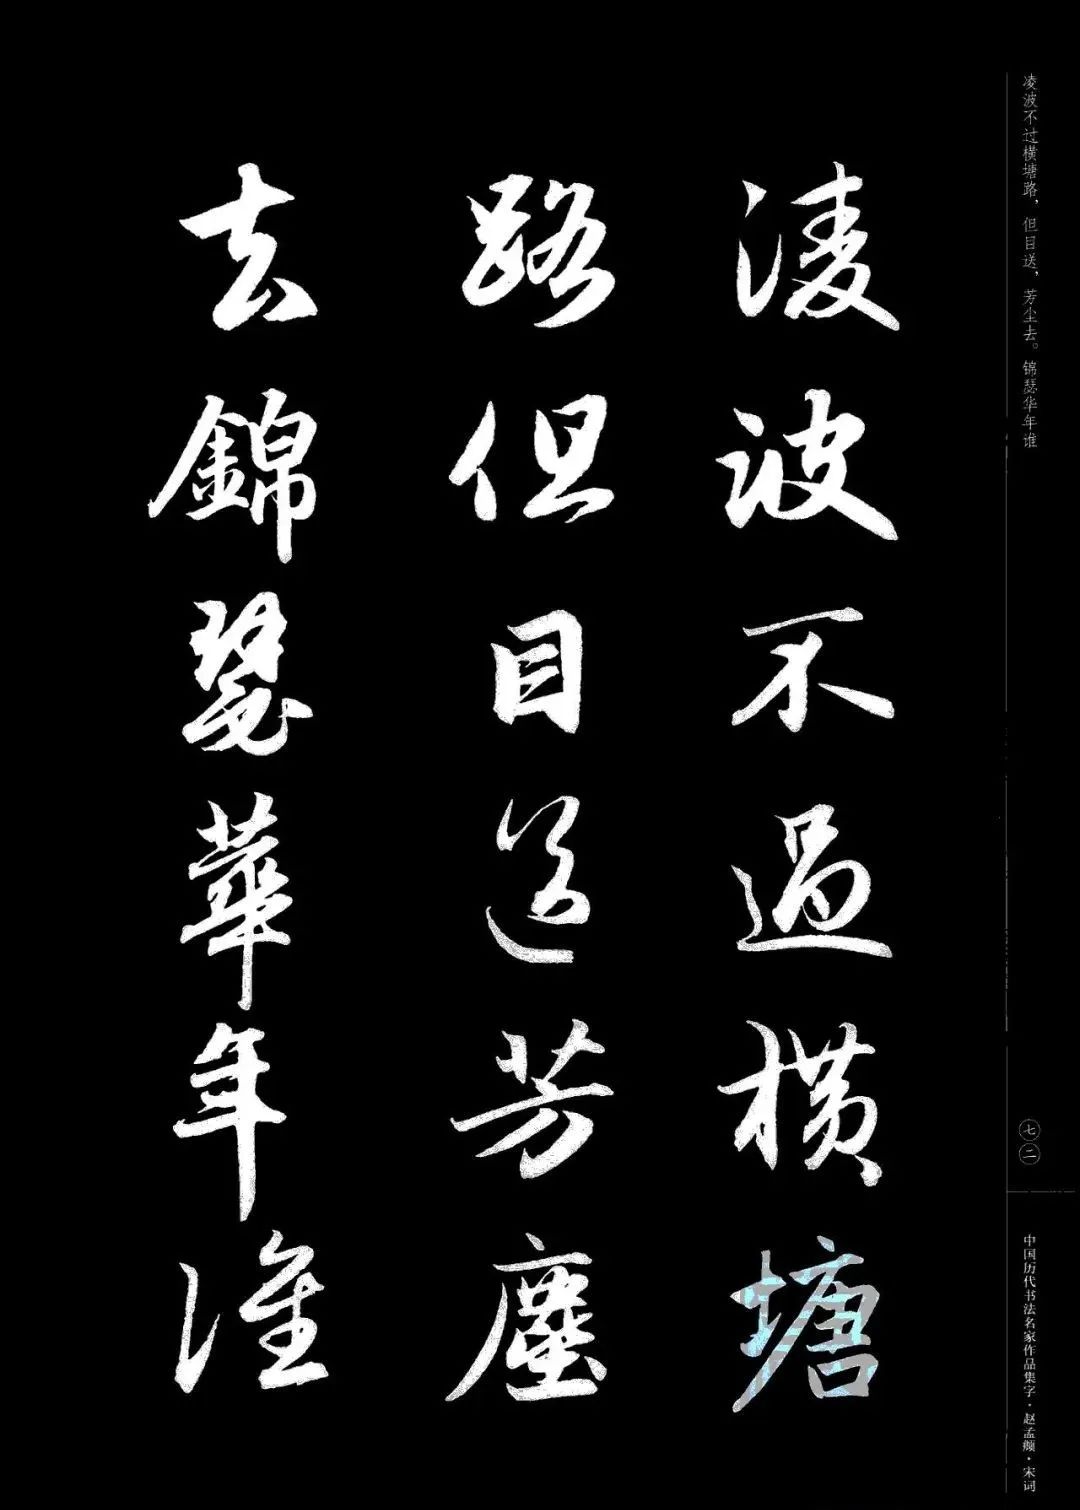 凌波不过横塘路，但目送，芳尘去。锦瑟华年谁
凌波不過橫塘
路但目送芳塵
去錦瑟華年誰
七二
中国历代书法名家作品集字·赵孟頫·宋词